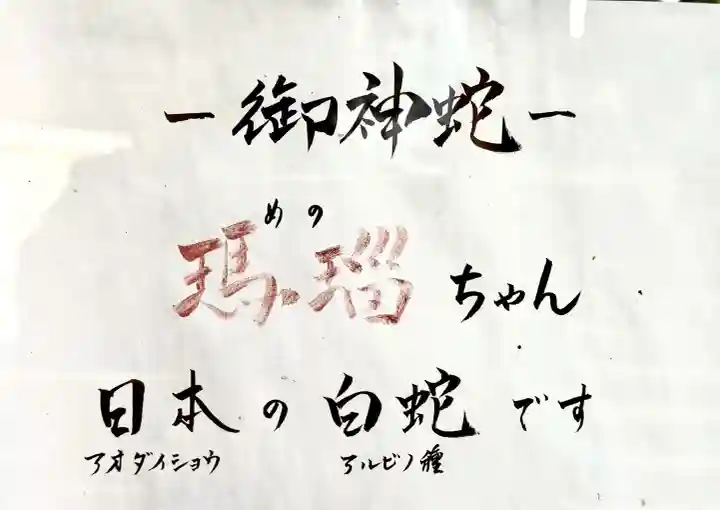 ー御神蛇ー
めのう
瑪瑙ちゃん
日本の白蛇です
アオダイショウ アルビノ種